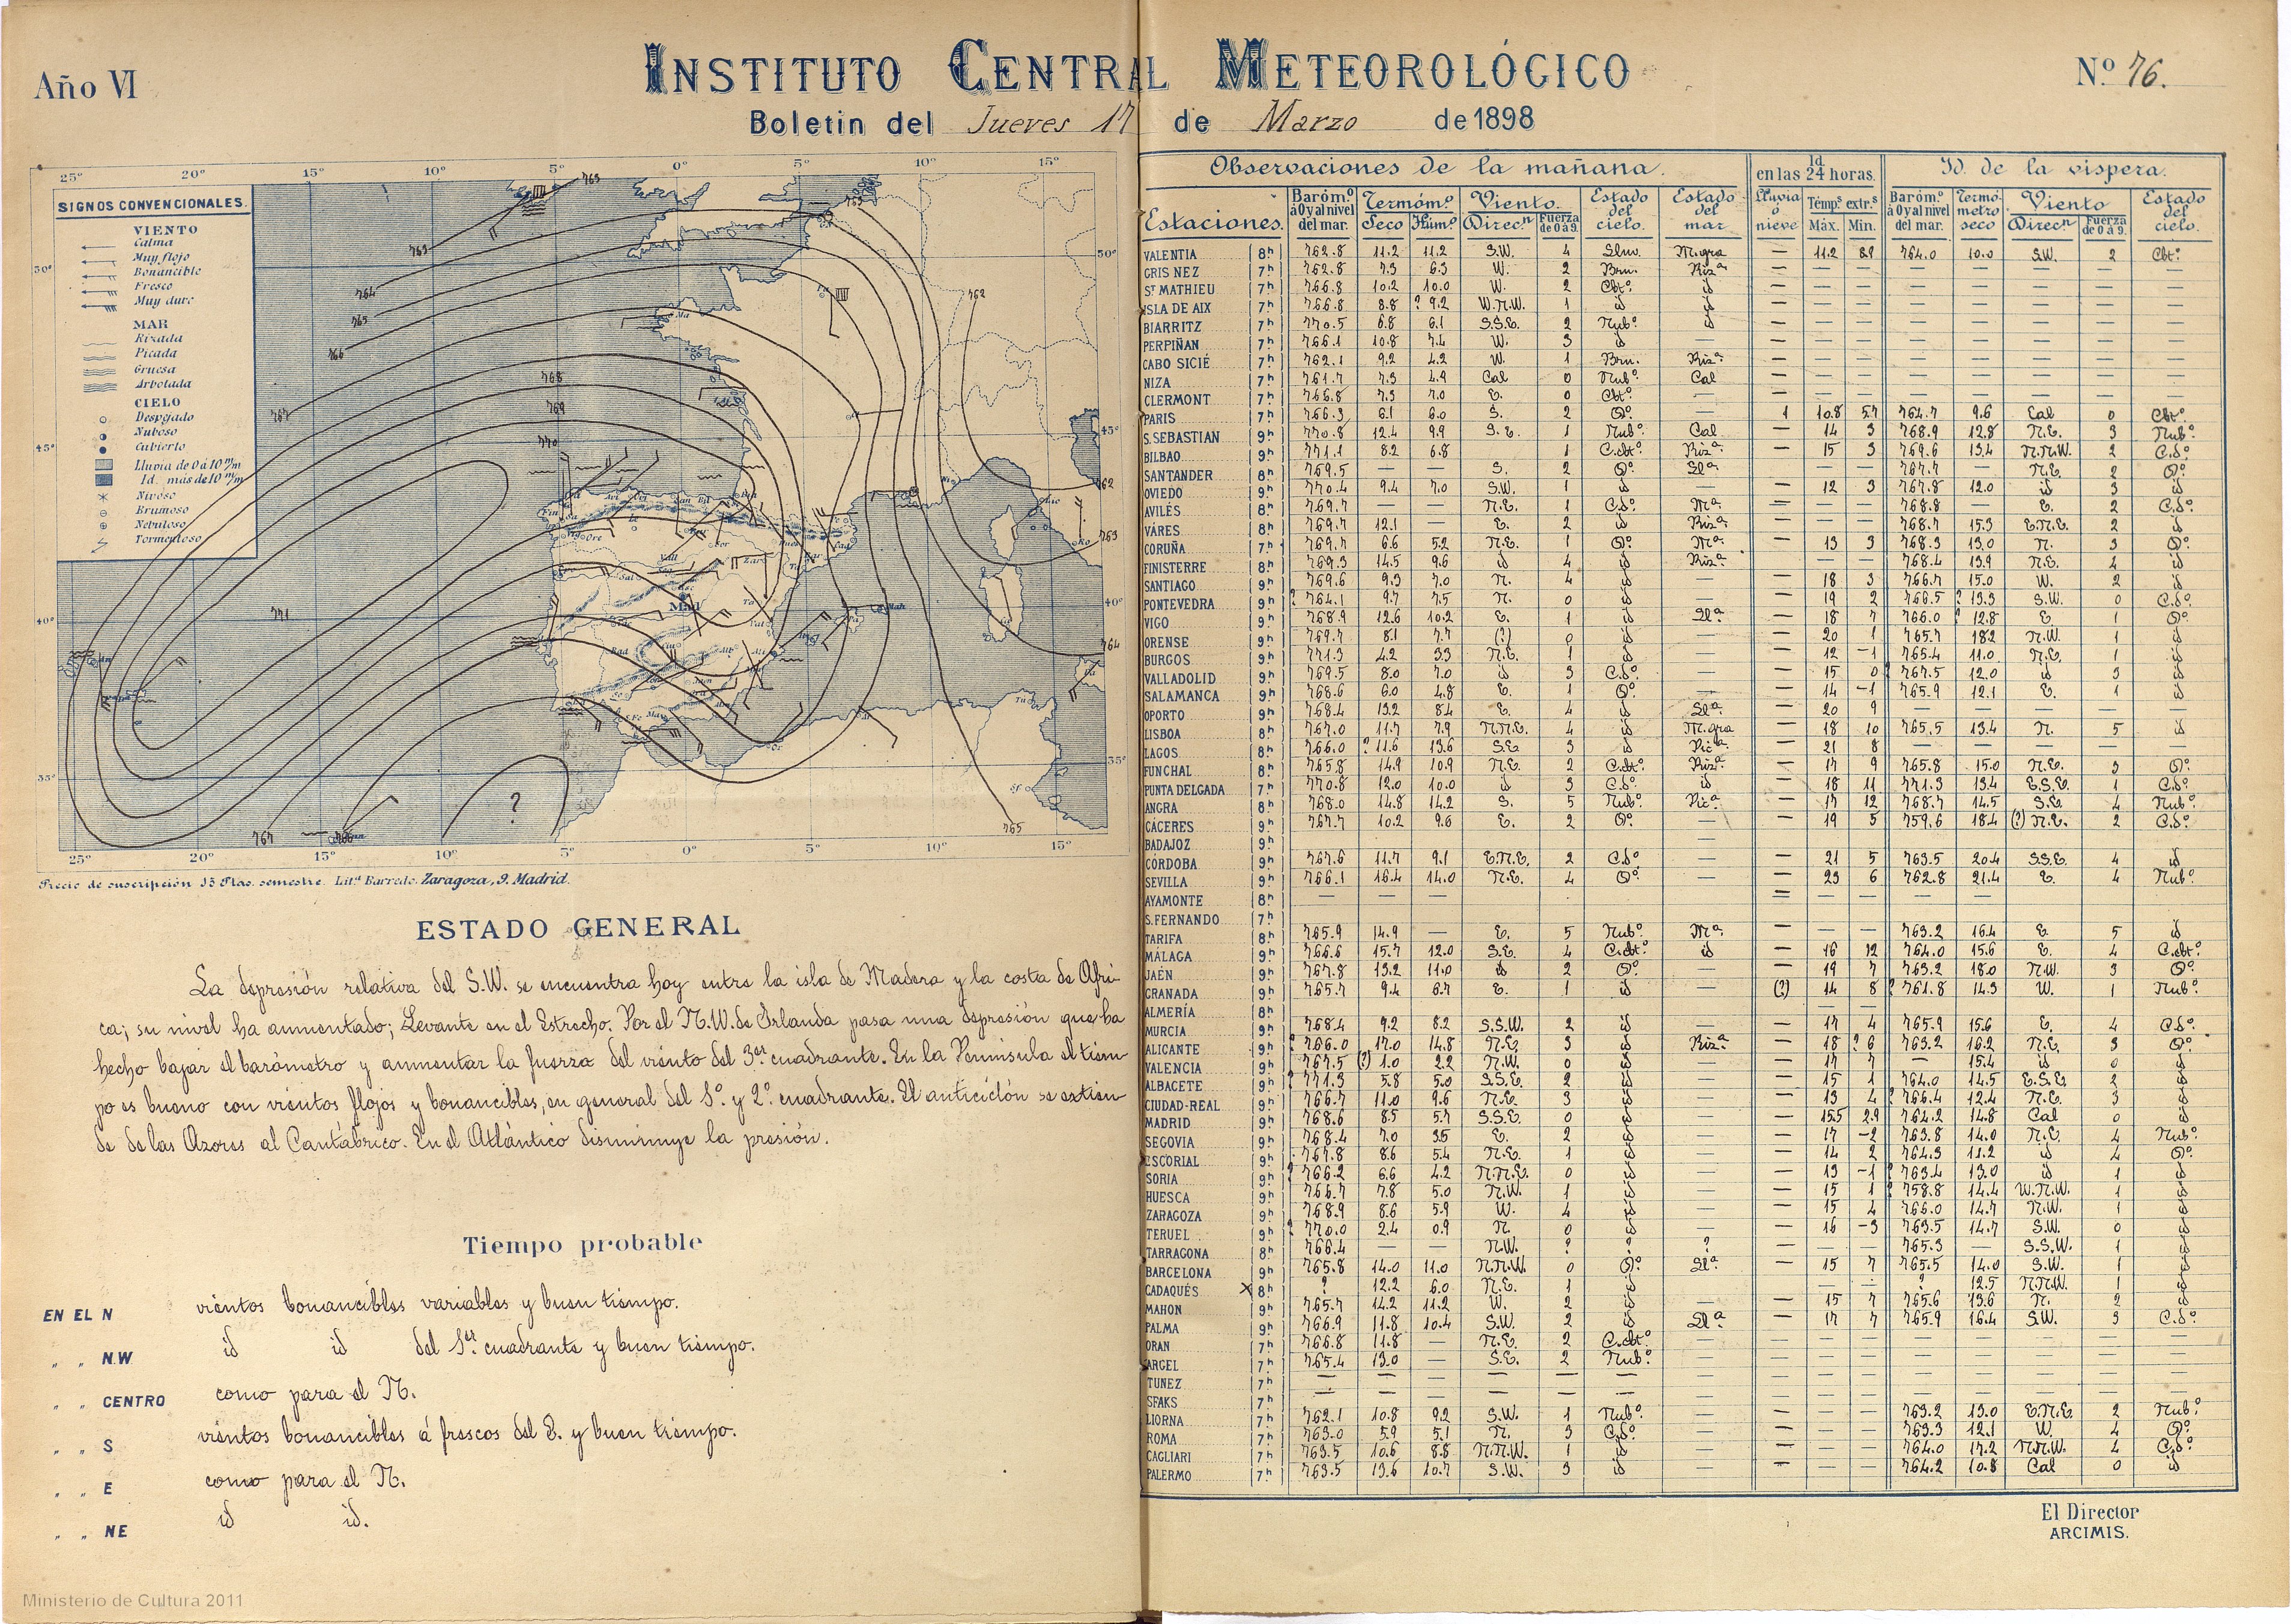 Año VI
INSTITUTO CENTRAL METEOROLÓGICO
Nº 76.
Boletin del Jueves 17 de Marzo de 1898
SIGNOS CONVENCIONALES.
VIENTO
Calma
Muy flojo
Bonancible
Fresco
Muy duro
MAR
Rizada
Picada
Gruesa
Arbolada
CIELO
Despejado
Nuboso
Cubierto
Lluvia de 0 á 10 m/m
Id. más de 10 m/m
Nivoso
Brumoso
Nebuloso
Tormentoso
Precio de suscripción 15 Ptas. semestre. Litª Barredo. Zaragoza, 9. Madrid.
ESTADO GENERAL
La depresión relativa del S.W. se encuentra hoy entre la isla de Madera y la costa de Afri-
ca; su nivel ha aumentado; Levante en el Estrecho. Por el N.W. de Irlanda pasa una depresión que ha
hecho bajar el barómetro y aumentar la fuerza del viento del 3er cuadrante. En la Peninsula el tiem
po es bueno con vientos flojos y bonancibles, en general del 1º y 2º cuadrante. El anticiclón se extien
de de las Azores al Cantábrico. En el Atlántico disminuye la presión.
Tiempo probable
EN EL N vientos bonancibles variables y buen tiempo.
" " N.W id id del 1er cuadrante y buen tiempo.
" " CENTRO como para el N.
" " S vientos bonancibles á frescos del E. y buen tiempo.
" " E como para el N.
" " NE id id.
Observaciones de la mañana.
Id en las 24 horas.
Id. de la vispera.
Estaciones.
Baróm.º á 0 y al nivel del mar.
Termóm.º Seco Húm.º
Viento. Direc.n Fuerza de 0 á 9.
Estado del cielo.
Estado del mar.
Lluvia ó nieve
Témp.s extr.s Máx. Min.
Baróm.º á 0 y al nivel del mar.
Termómetro seco
Viento Direc.n Fuerza de 0 á 9.
Estado del cielo.
VALENTIA 8h 762.8 11.2 11.2 S.W. 4 Sluv. M.gra — 11.2 8.9 764.0 10.0 S.W. 2 Cbtº
GRIS NEZ 7h 762.8 7.3 6.3 W. 2 Brm. Rizª
ST MATHIEU 7h 766.8 10.2 10.0 W. 2 Cbtº id
ISLA DE AIX 7h 766.8 8.8 ? 9.2 W.N.W. 1 id id
BIARRITZ 7h 770.5 6.8 6.1 S.S.E. 2 Nubº id
PERPIÑAN 7h 766.1 10.8 7.4 W. 3 id —
CABO SICIÉ 7h 762.1 9.2 4.2 W. 1 Brm. Rizª
NIZA 7h 761.7 7.3 4.9 Cal 0 Nubº Cal
CLERMONT 7h 766.8 7.3 7.0 E. 0 Cbtº
PARIS 7h 766.3 6.1 6.0 S. 2 Dº — 1 10.8 5.7 764.7 9.6 Cal 0 Cbtº
S. SEBASTIAN 9h 770.8 12.4 9.9 S.E. 1 Nubº Cal — 14 3 768.9 12.8 N.E. 3 Nubº
BILBAO 9h 771.1 8.2 6.8 1 C.cbtº Rizª — 15 3 769.6 13.4 N.N.W. 2 C.dº
SANTANDER 8h 769.5 — — S. 2 Dº Slª — — — 767.7 — N.E. 2 Dº
OVIEDO 9h 770.4 9.4 7.0 S.W. 1 id — — 12 3 767.8 12.0 id 3 id
AVILÉS 8h 769.7 — — N.E. 1 C.dº Mª — — — 768.8 — E. 2 C.dº
VÁRES 8h 769.7 12.1 — E. 2 id Rizª — — — 768.7 15.3 E.N.E. 2 id
CORUÑA 7h 769.7 6.6 5.2 N.E. 1 Dº Mª — 13 3 768.3 13.0 N. 3 Dº
FINISTERRE 8h 769.3 14.5 9.6 id 4 id Rizª — — — 768.4 13.9 N.E. 4 id
SANTIAGO 9h 769.6 9.3 7.0 N. 4 id — 18 3 766.7 15.0 W. 2 id
PONTEVEDRA 9h ? 764.1 9.7 7.5 N. 0 id — 19 2 766.5 ? 13.3 S.W. 0 C.dº
VIGO 9h 768.9 12.6 10.2 E. 1 id Slª — 18 7 766.0 ? 12.8 E 1 Dº
ORENSE 9h 769.7 8.1 7.7 (?) 0 id — 20 1 765.7 18.2 N.W. 1 id
BURGOS 9h 771.3 4.2 3.3 N.E. 1 id — 12 -1 765.4 11.0 N.E. 1 id
VALLADOLID 9h 769.5 8.0 7.0 id 3 C.dº — — 15 0 767.5 12.0 id 3 id
SALAMANCA 9h 768.6 6.0 4.8 E. 1 Dº — — 14 -1 765.9 12.1 E. 1 id
OPORTO 9h 768.4 13.2 8.4 E. 4 id Slª — 20 9 — — — — —
LISBOA 8h 767.0 11.7 7.9 N.N.E. 4 id M.gra — 18 10 765.5 13.4 N. 5 id
LAGOS 8h 766.0 ? 11.6 13.6 S.E 3 id Picª — 21 8 — — — — —
FUNCHAL 8h 765.8 14.9 10.9 N.E. 2 C.cbtº Rizª — 17 9 765.8 15.0 N.E. 3 Dº
PUNTA DELGADA 7h 770.8 12.0 10.0 id 3 C.dº id — 18 11 771.3 13.4 E.S.E. 1 C.dº
ANGRA 8h 768.0 14.8 14.2 S. 5 Nubº Picª — 17 12 768.7 14.5 S.E. 4 Nubº
CÁCERES 9h 767.7 10.2 9.6 E. 2 Dº — — 19 5 759.6 18.4 (?) N.E. 2 C.dº
BADAJOZ 9h
CÓRDOBA 9h 767.6 11.7 9.1 E.N.E. 2 C.dº — — 21 5 763.5 20.4 S.S.E. 4 id
SEVILLA 9h 766.1 16.4 14.0 N.E. 4 Dº — — 23 6 762.8 21.4 E. 4 Nubº
AYAMONTE 8h — — —
S. FERNANDO 7h
TARIFA 8h 765.9 14.9 — E. 5 Nubº Mª — — — 763.2 16.4 E. 5 id
MÁLAGA 9h 766.6 15.7 12.0 S.E. 4 C.cbtº id — 16 12 764.0 15.6 E. 4 C.cbtº
JAÉN 9h 767.8 13.2 11.0 id 2 Dº — — 19 7 763.2 18.0 N.W. 3 Dº
GRANADA 9h 765.7 9.4 6.7 E. 1 id — (?) 14 8 ? 761.8 14.3 W. 1 Nubº
ALMERÍA 9h
MURCIA 9h 768.4 9.2 8.2 S.S.W. 2 id — — 17 4 765.9 15.6 E. 4 C.dº
ALICANTE 9h ? 766.0 17.0 14.8 N.E. 3 id Rizª — 18 ? 6 763.2 16.2 N.E. 3 Dº
VALENCIA 9h 767.5 (?) 1.0 2.2 N.W. 0 id — 17 7 — 15.4 id 0 id
ALBACETE 9h ? 771.3 5.8 5.0 S.S.E. 2 id — — 15 1 764.0 14.5 E.S.E. 2 id
CIUDAD-REAL 9h 766.7 11.0 9.6 N.E. 3 id — — 13 4 ? 766.4 12.4 N.E. 3 id
MADRID 9h 768.6 8.5 5.7 S.S.E. 0 id — — 15.5 2.9 764.2 14.8 Cal 0 id
SEGOVIA 9h 768.4 7.0 3.5 E. 2 id — — 17 -2 763.8 14.0 N.E. 4 Nubº
ESCORIAL 9h 767.8 8.6 5.4 N.E. 1 id — — 14 2 764.3 11.2 id 4 Dº
SORIA 9h ? 766.2 6.6 4.2 N.N.E. 0 id — — 13 -1 ? 763.4 13.0 id 1 id
HUESCA 9h 766.7 7.8 5.0 N.W. 1 id — — 15 1 ? 758.8 14.4 W.N.W. 1 id
ZARAGOZA 9h 768.9 8.6 5.9 W. 4 id — — 15 4 766.0 14.7 N.W. 1 id
TERUEL 9h ? 770.0 2.4 0.9 N. 0 id — — 16 -3 763.5 14.7 S.W. 0 id
TARRAGONA 8h 766.4 — — N.W. ? ? ? — — — 765.3 — S.S.W. 1 id
BARCELONA 9h 765.8 14.0 11.0 N.N.W. 0 Dº Slª — 15 7 765.5 14.0 S.W. 1 id
CADAQUÉS X 8h ? 12.2 6.0 N.E. 1 id — — ? 12.5 N.N.W. 1 id
MAHON 9h 765.7 14.2 11.2 W. 2 id — — 15 7 765.6 13.6 N. 2 id
PALMA 9h 766.9 11.8 10.4 S.W. 2 id Slª — 17 7 765.9 16.4 S.W. 3 C.dº
ORAN 7h 766.8 11.8 — N.E. 2 C.cbtº
ARGEL 7h 765.4 13.0 — S.E. 2 Nubº
TUNEZ 7h
SFAKS 7h
LIORNA 7h 762.1 10.8 9.2 S.W. 1 Nubº — — — — 763.2 13.0 E.N.E. 2 Nubº
ROMA 7h 763.0 5.9 5.1 N. 3 C.dº — — — — 763.3 12.1 W. 4 Dº
CAGLIARI 7h 763.5 10.6 8.8 N.N.W. 1 id — — — — 764.0 17.2 N.N.W. 4 C.dº
PALERMO 7h 763.5 13.6 10.7 S.W. 3 id — — — — 764.2 10.8 Cal 0 id
El Director
ARCIMIS.
Ministerio de Cultura 2011